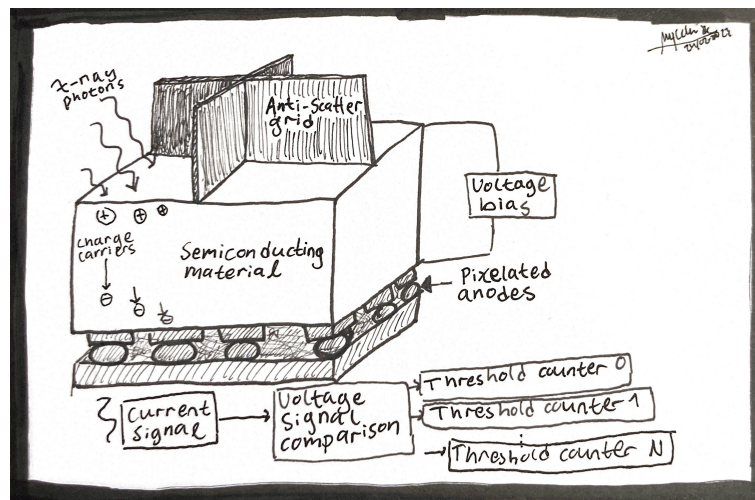 X-ray
photons
Anti-Scatter
grid
Voltage
bias
charge
carriers
Semiconducting
material
Pixelated
anodes
Current
signal
Voltage
signal
comparison
Threshold counter 0
Threshold counter 1
Threshold counter N